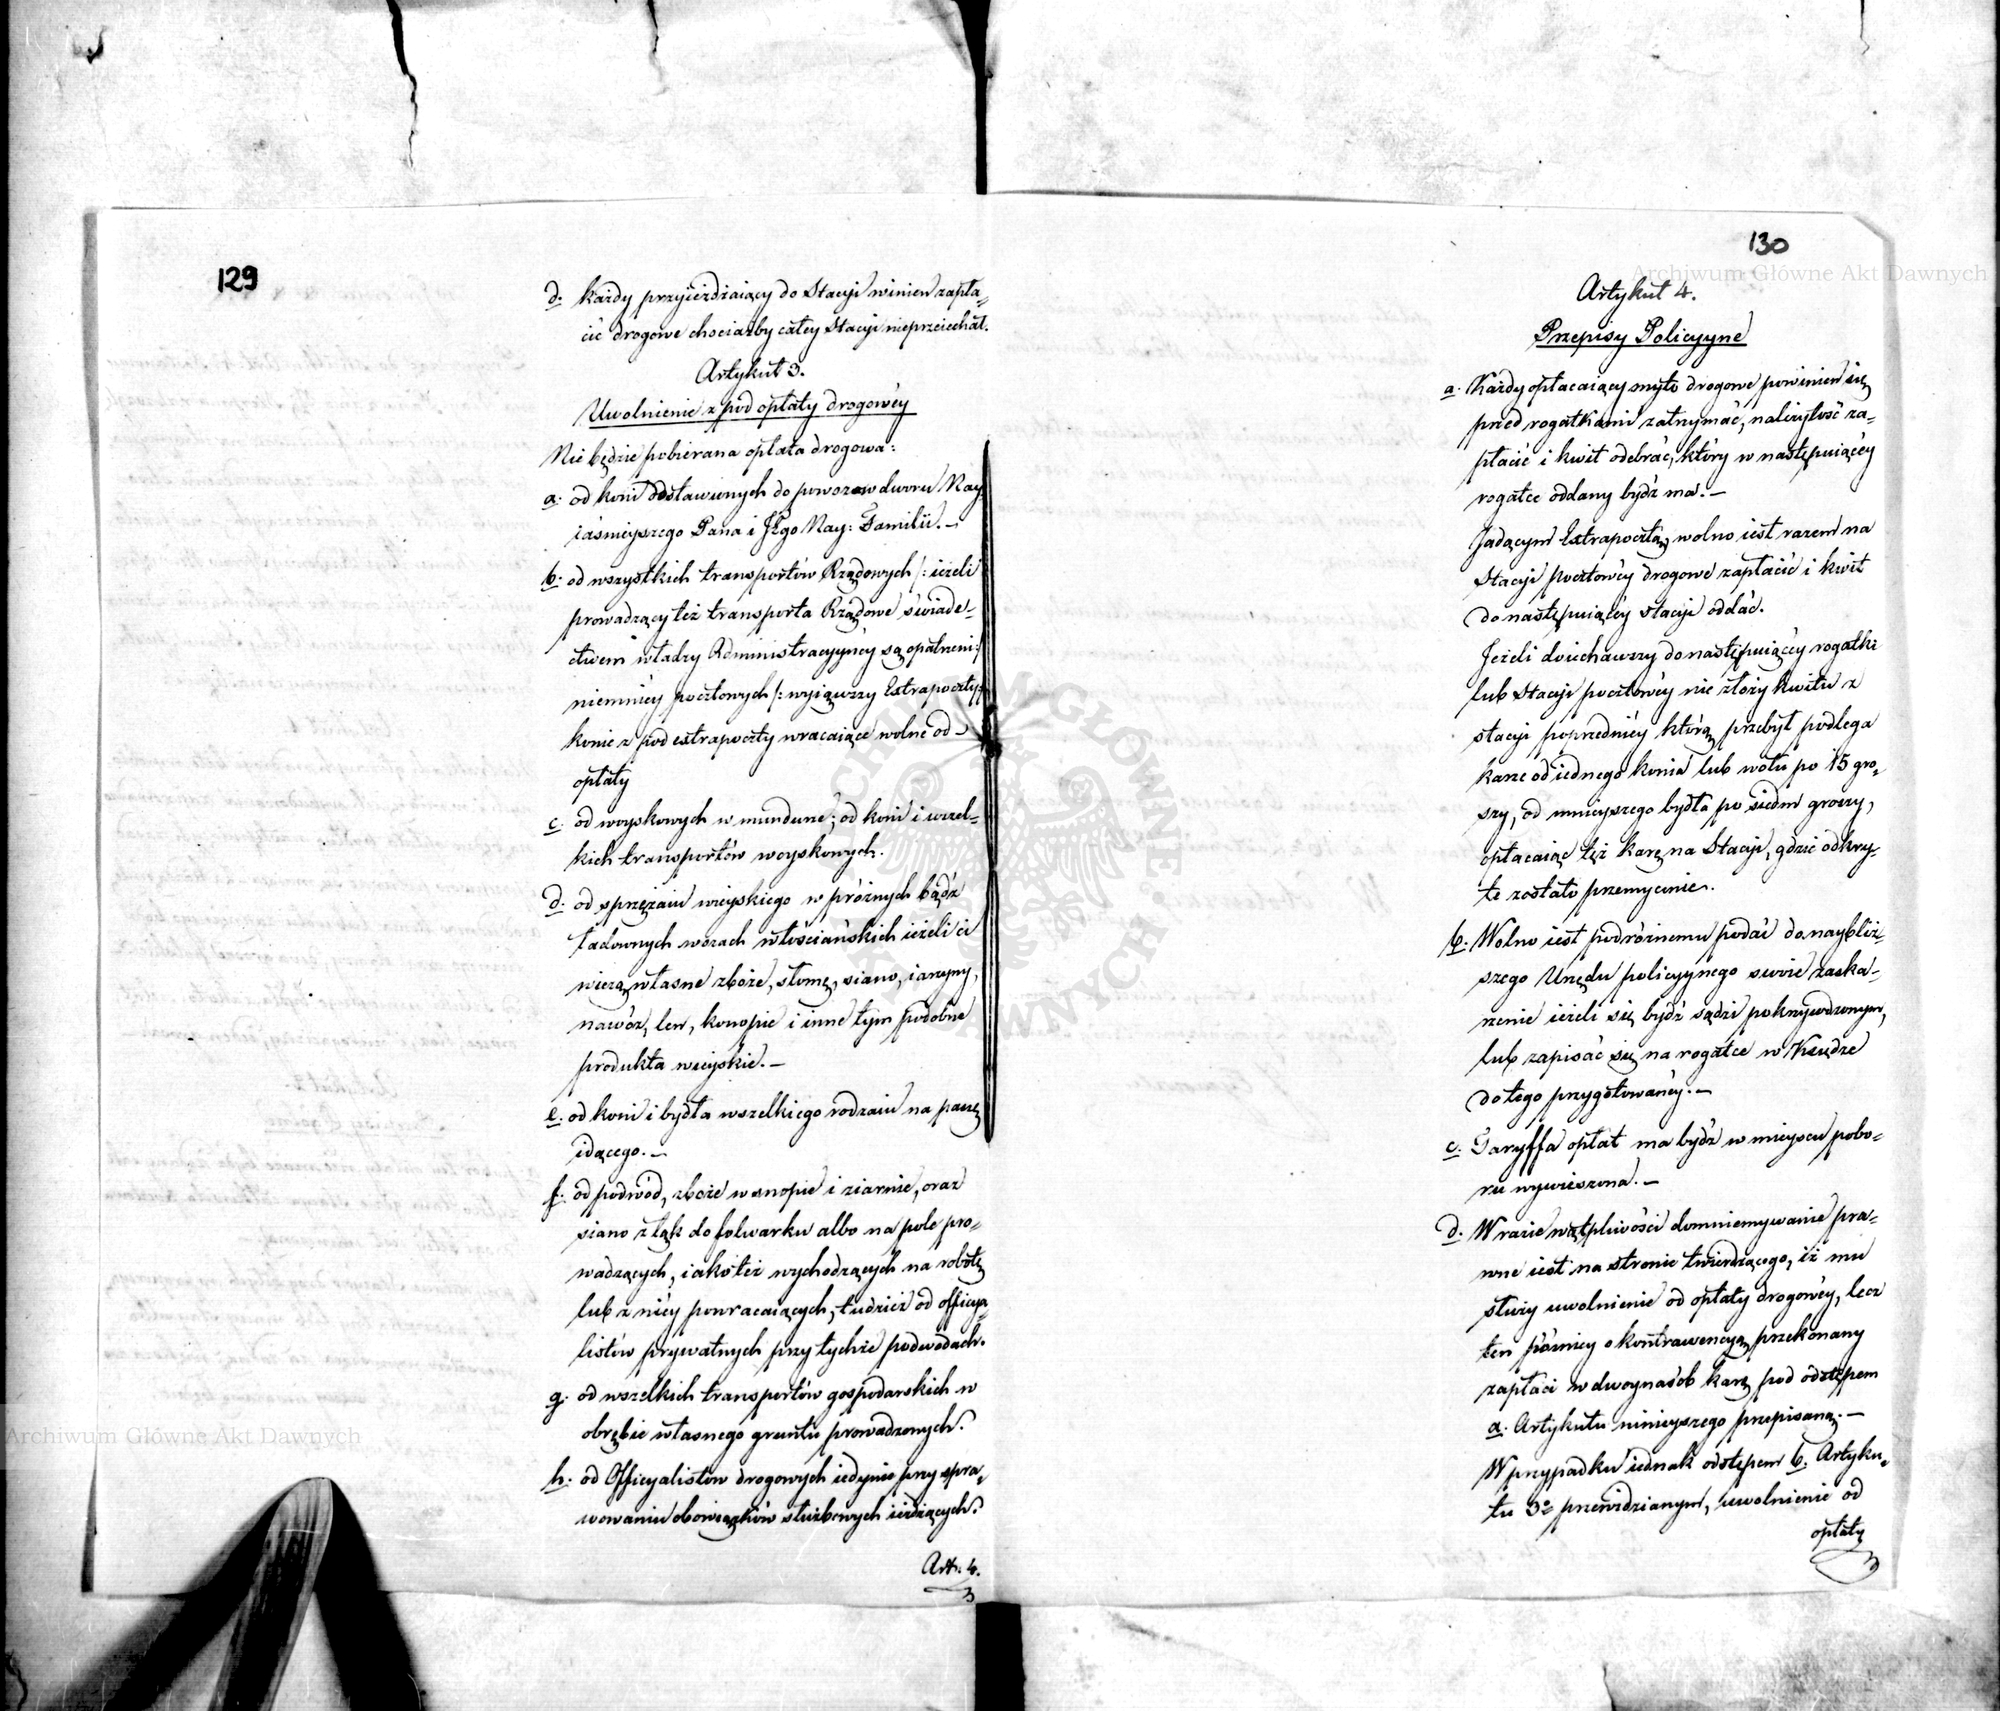 129
d. każdy przyieżdżaiący do Stacyi winien zapła-
cić drogowe chociażby całey Stacyi nieprzeiechał.
Artykuł 3.
Uwolnienie z pod opłaty drogowéy
Nie będzie pobierana opłata drogowa:
a. od koni dostawionych do powozow dworu Nay-
iaśnieyszego Pana i JEgo Nay: Familii. —
b. od wszystkich transportów Rządowych /: ieżeli
prowadzący też transporta Rządowe świade-
ctwem władzy Administracyynéy są opatrzeni :/
niemniéy pocztowych /: wyiąwszy Extrapoczty :/
konie z pod extrapoczty wracaiące wolne od
opłaty
c. od woyskowych w mundurze; od koni i wszel-
kich transportów woyskowych.
d. od sprzężaiu wieyskiego w próżnych bądź
ładownych wozach włościańskich ieżeli ci
wiezą własne zboże, słomę, siano, iarzyny,
nawóz, len, konopie i inne tym podobne
produkta wieyskie. —
e. od koni i bydła wszelkiego rodzaiu na paszę
idącego. —
f. od podwód, zboże w snopie i ziarnie, oraz
siano z łąk do folwarku albo na pole pro-
wadzących, iako też wychodzących na robotę
lub z niéy powracaiących, tudzież od officya-
listów prywatnych przy tychże podwodach.
g. od wszelkich transportów gospodarskich w
obrębie własnego gruntu prowadzonych.
h. od Officyalistów drogowych iedynie przy spra-
wowaniu obowiązków służbowych ieżdżących.
Art. 4.
130
Artykuł 4.
Przepisy Policyyne
a. Każdy opłacaiący myto drogowe powinien się
przed rogatkami zatrzymać, należytość za-
płacić i kwit odebrać, który w następuiącéy
rogatce oddany bydź ma. —
Jadącym Extrapocztą, wolno iest razem na
Stacyi pocztowéy drogowe zapłacić i kwit
do następuiącéy stacyi oddać.
Jeżeli doiechawszy do następuiącéy rogatki
lub Stacyi pocztowéy nie złoży kwitu z
stacyi poprzedniéy którą przebył podlega
karze od iednego konia lub wołu po 15 gro-
szy, od mnieyszego bydła po siedm groszy,
opłacaiąc też karę na Stacyi, gdzie odkry-
te zostało przemycenie.
b. Wolno iest podróżnemu podać do nayбliż-
szego Urzędu policyynego swoie zaska-
rzenie ieżeli się bydź sądzi pokrzywdzonym,
lub zapisać się na rogatce w Księdze
do tego przygotowanéy. —
c. Taryffa opłat ma bydź w mieyscu pobo-
ru wywieszona. —
d. W razie wątpliwości domniemywanie pra-
wne iest na stronie twierdzącego, iż mu
służy uwolnienie od opłaty drogowéy, lecz
ten późniey o kontrawencyą przekonany
zapłaci w dwoynasób karę pod odstępem
a. Artykułu ninieyszego przepisaną. —
W przypadku iednak odstępem b. Artyku-
łu 3º przewidzianym, uwolnienie od
opłaty